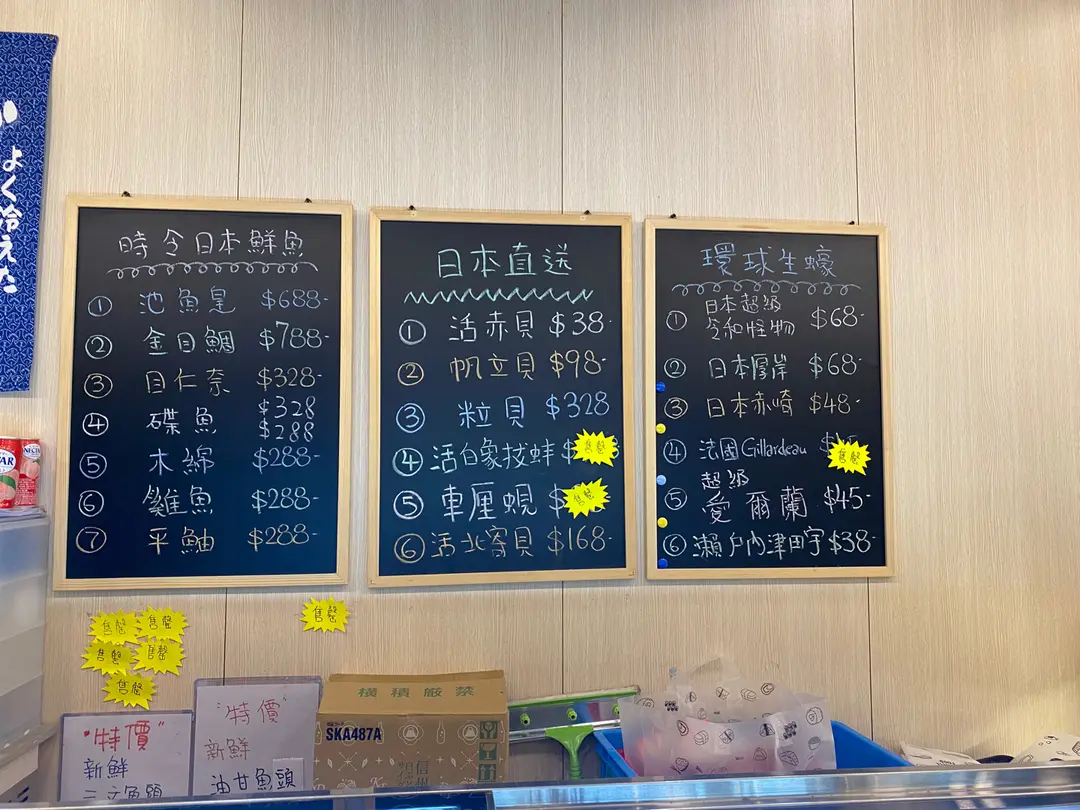 よく冷えた
時令日本鮮魚
① 池魚皇 $688-
② 金目鯛 $788-
③ 目仁奈 $328-
④ 碟魚 $328 $288
⑤ 木綿 $288-
⑥ 雞魚 $288-
⑦ 平鮋 $288-
日本直送
① 活赤貝 $38-
② 帆立貝 $98-
③ 粒貝 $328
④ 活白象拔蚌 $ 售罄
⑤ 車厘蜆 $ 售罄
⑥ 活北寄貝 $168-
環球生蠔
① 日本超級
令和怪物 $68-
② 日本厚岸 $68-
③ 日本赤崎 $48-
④ 法國Gillardeau 售罄
超級
⑤ 愛爾蘭 $45-
⑥ 瀨戶內津田宇 $38-
售罄
售罄
售罄
售罄
售罄
售罄
"特價"
新鮮
三文魚頭
"特價"
新鮮
油甘魚頭
横積厳禁
SKA487A
NECTAR